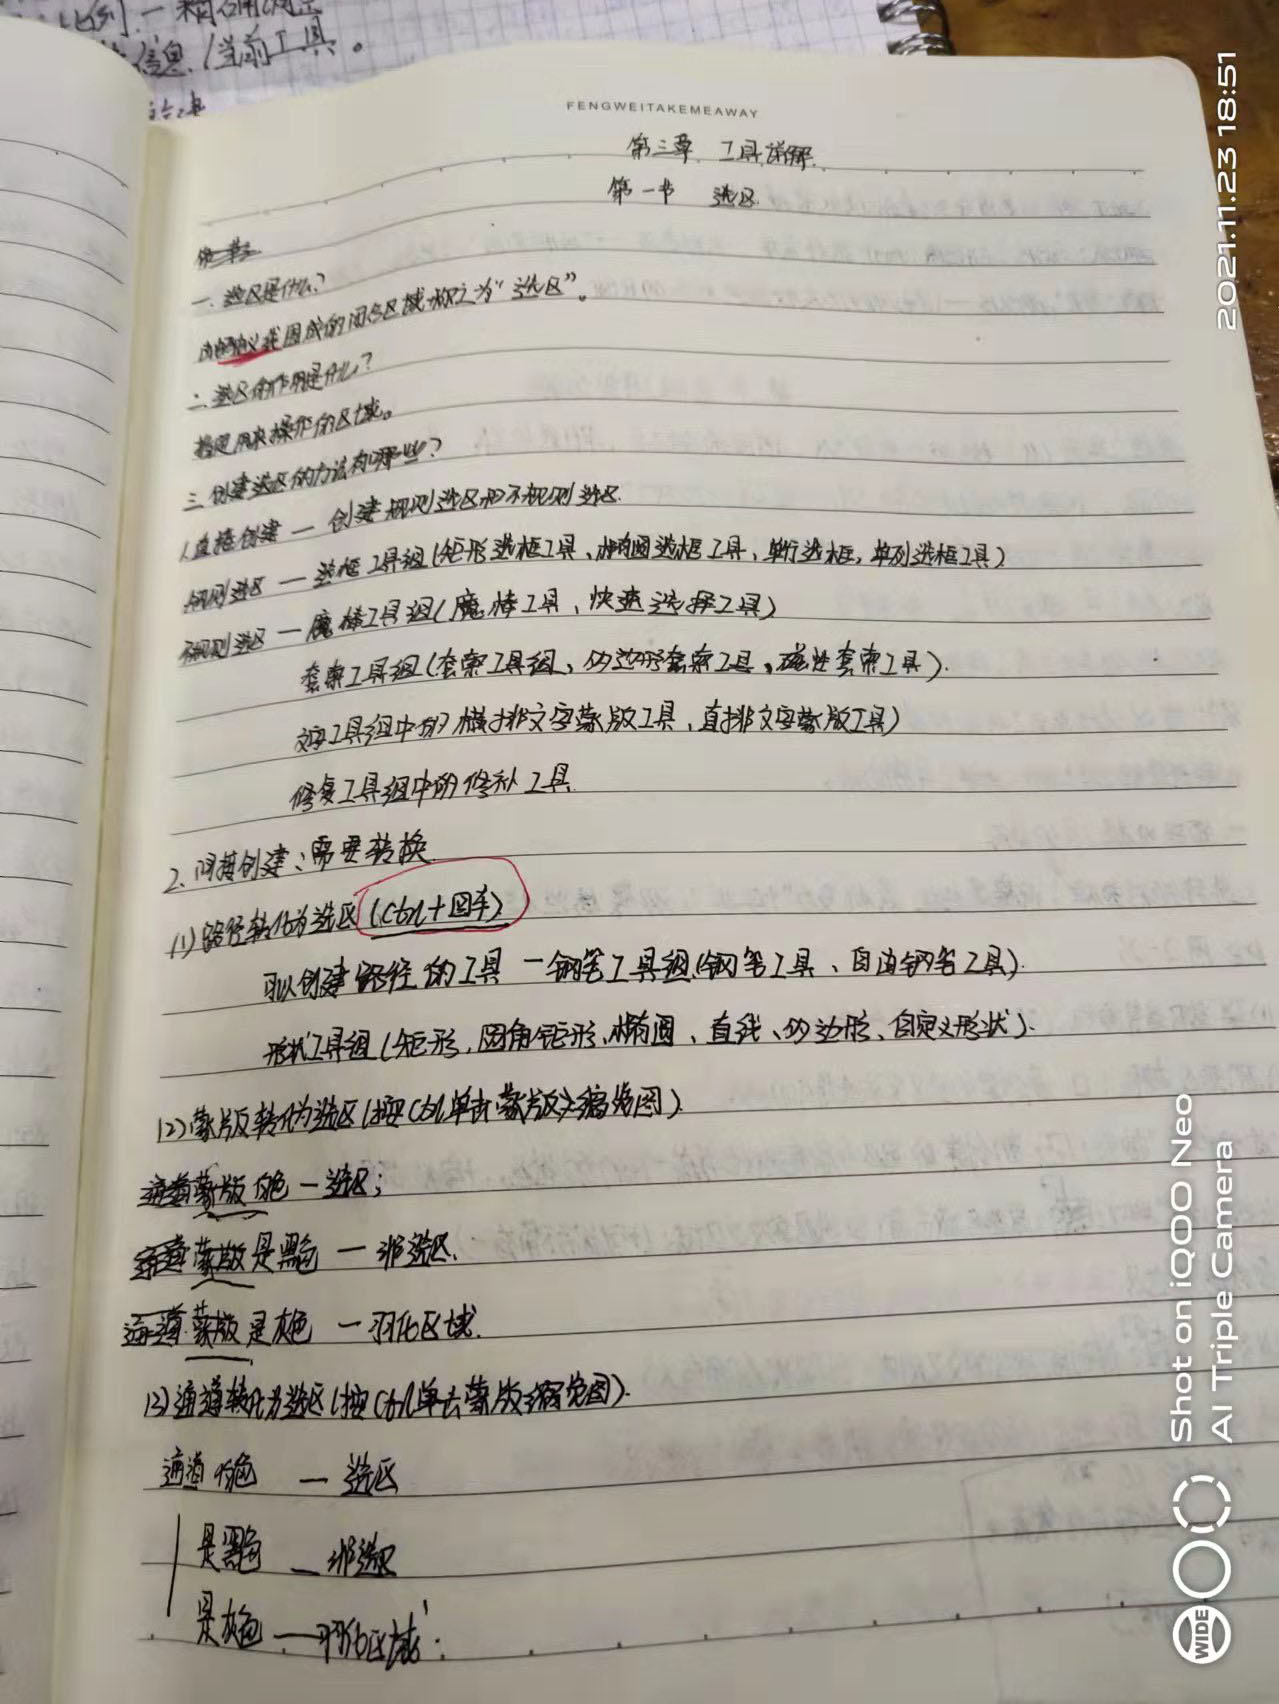 信息(当前工具。
FENGWEITAKEMEAWAY
第三章 工具详解.
第一节 选区.
一、选区是什么?
由蚂蚁线围成的闭合区域称之为“选区”。
二、选区的作用是什么?
指定用来操作的区域。
三、创建选区的方法有哪些?
1.直接创建 — 创建规则选区和不规则选区.
规则选区 — 选框工具组(矩形选框工具、椭圆选框工具,单行选框,单列选框工具)
不规则选区 — 魔棒工具组(魔棒工具、快速选择工具)
套索工具组(套索工具组、多边形套索工具、磁性套索工具).
文字工具组中的)横排文字蒙版工具、直排文字蒙版工具)
修复工具组中的修补工具.
2.间接创建:需要转换.
(1)路径转化为选区(Ctrl+回车)
可以创建路径的工具 —钢笔工具组(钢笔工具、自由钢笔工具).
形状工具组(矩形,圆角矩形、椭圆、直线、多边形、自定义形状).
(2)蒙版转化为选区(按Ctrl单击蒙版缩览图)
蒙版白色 — 选区;
蒙版是黑色 — 非选区.
蒙版是灰色 — 羽化区域.
(3)通道转化为选区(按Ctrl单击蒙版缩览图).
通道白色 — 选区
是黑色 — 非选区
是灰色 — 羽化区域.
2021.11.23 18:51
Shot on iQOO Neo
AI Triple Camera
WIDE